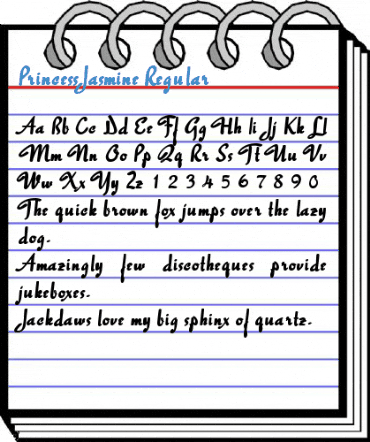 PrincessJasmine Regular
Aa Bb Cc Dd Ee Ff Gg Hh Ii Jj Kk Ll
Mm Nn Oo Pp Qq Rr Ss Tt Uu Vv
Ww Xx Yy Zz 1 2 3 4 5 6 7 8 9 0
The quick brown fox jumps over the lazy
dog.
Amazingly few discotheques provide
jukeboxes.
Jackdaws love my big sphinx of quartz.